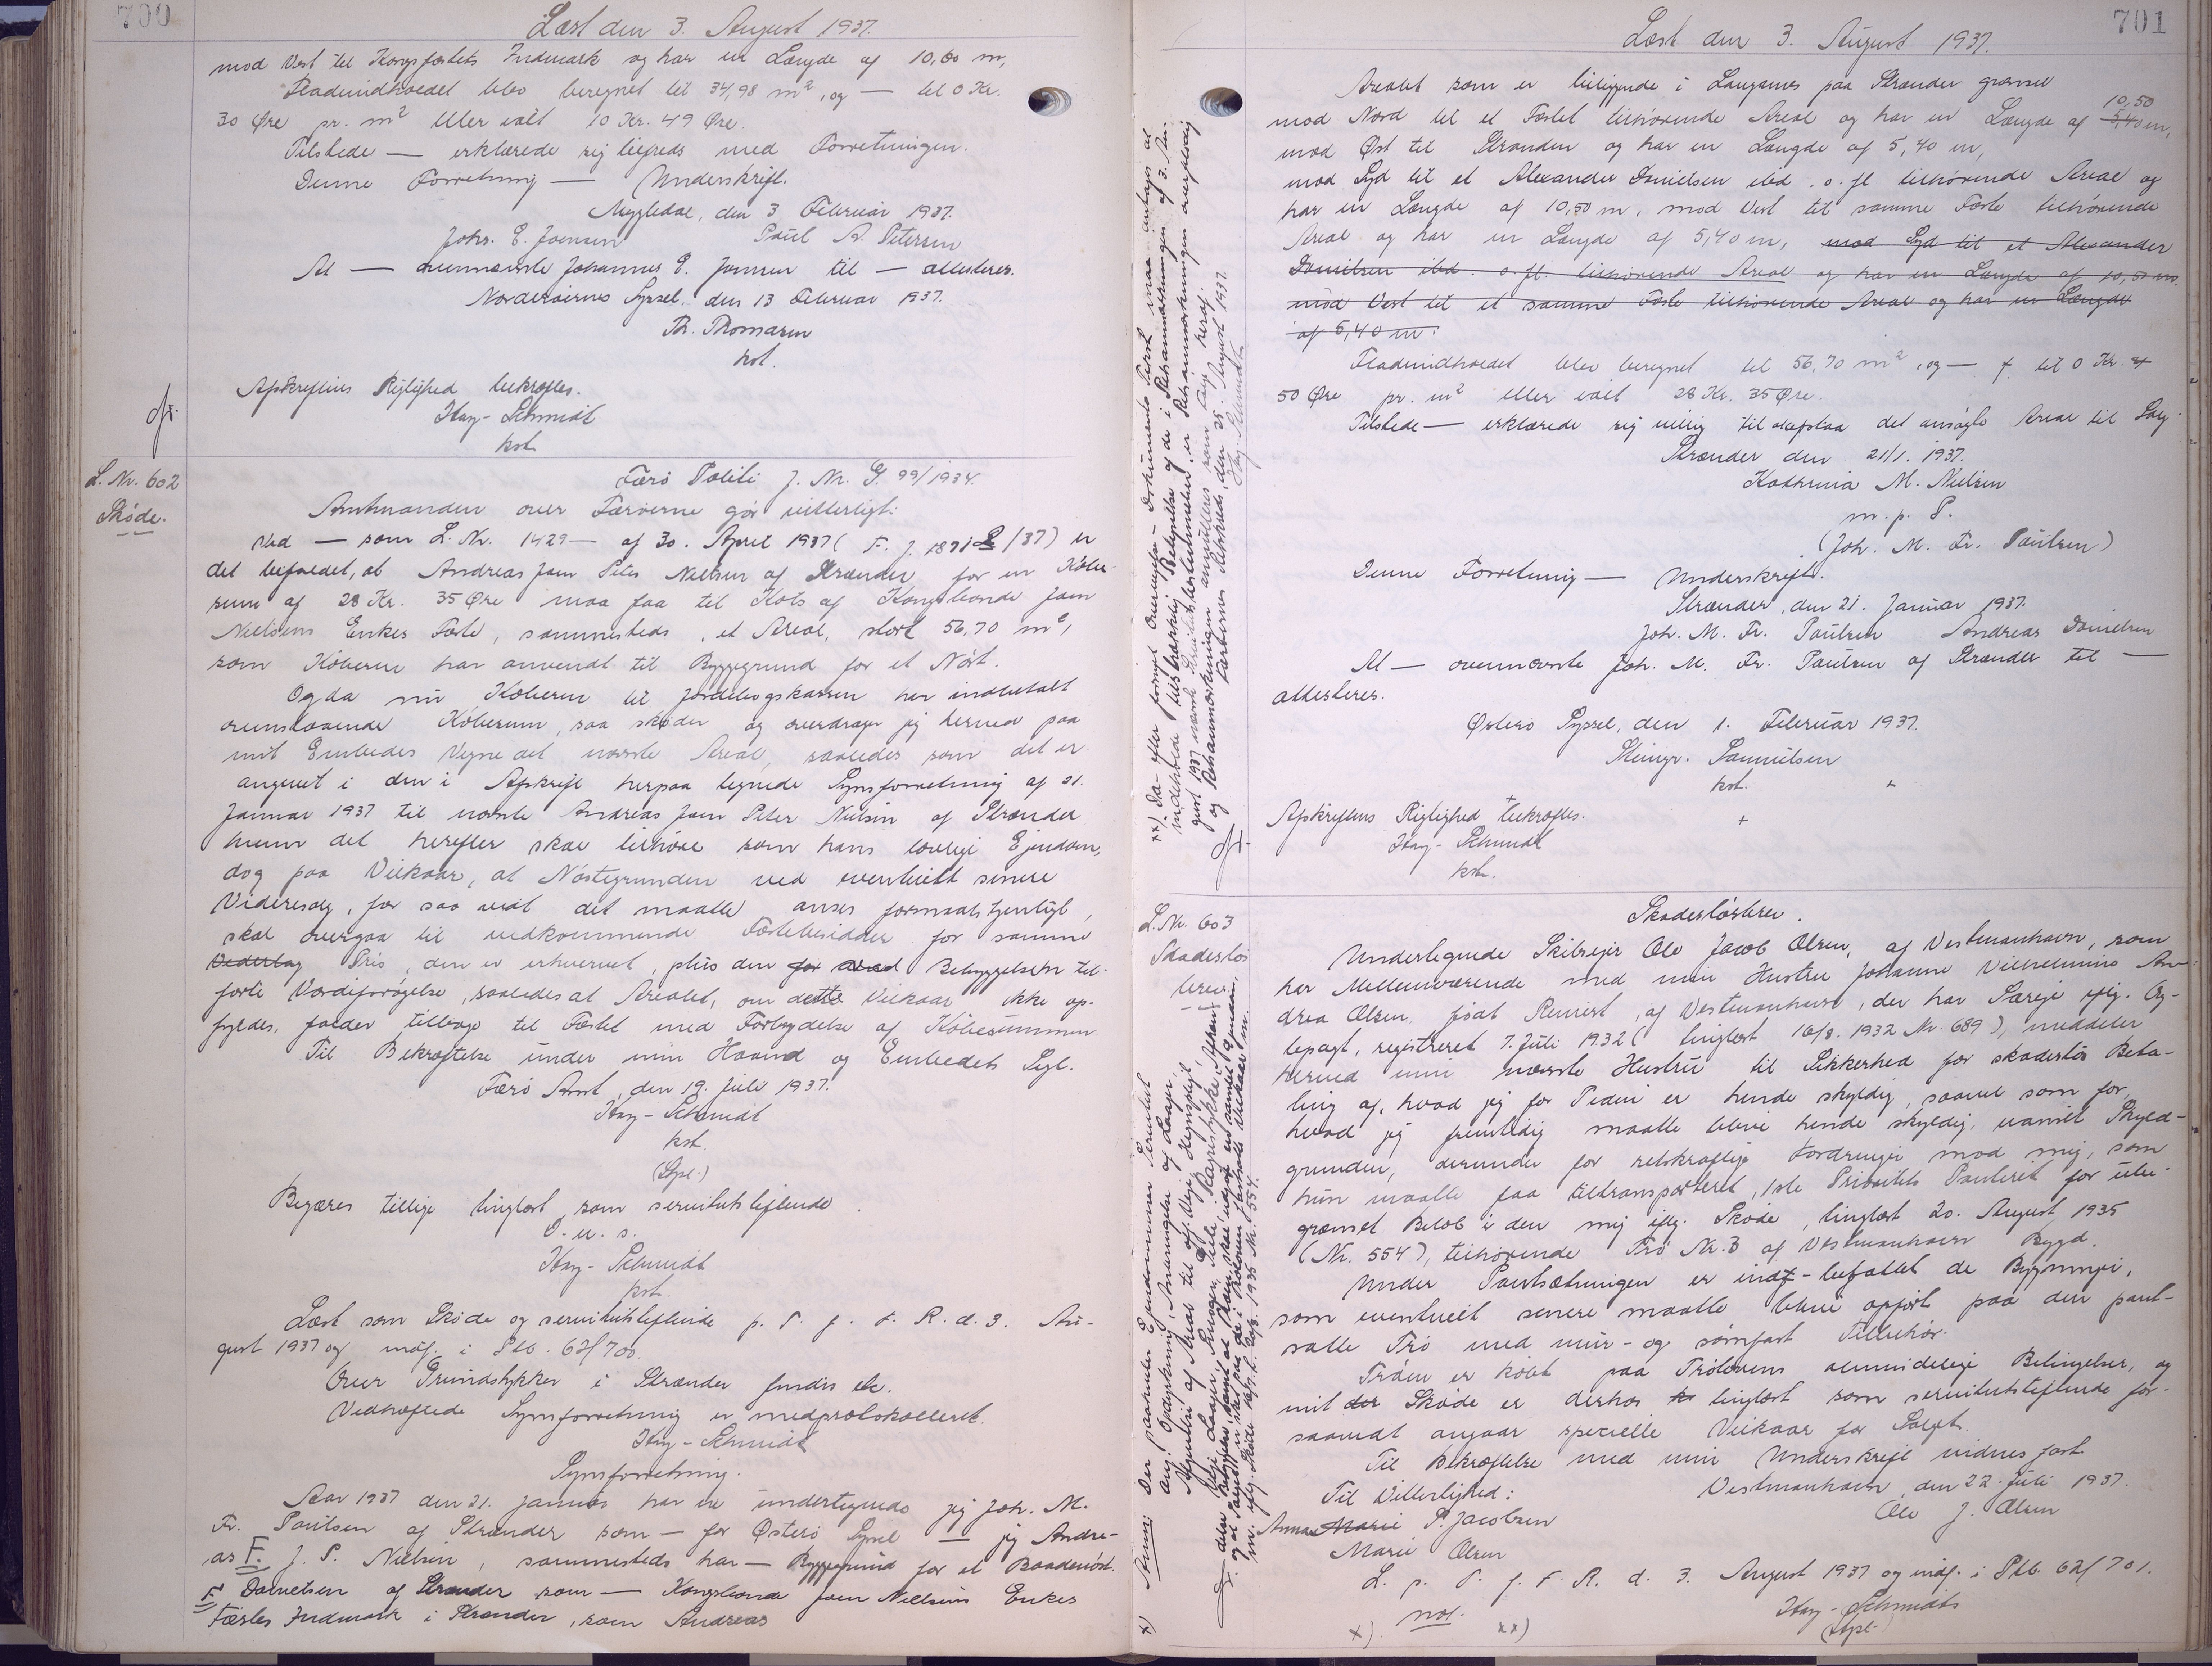 700
Læst den 3. August 1937.
mod Vest til Kongsfæstets Indmark og har en Længde af 10,60 m,
Fladeindholdet blev beregnet til 34,98 m², og — til 0 Kr.
30 Øre pr. m² eller ialt 10 Kr. 49 Øre.
Tilstede — erklærede sig tilfreds med Forretningen.
Denne Forretning — Underskrift.
Mygledal, den 3 Februar 1937.
Johs. E. Joensen Poul A. Petersen
At — ovennævnte Johannes E. Joensen til — attesteres.
Norderøernes Syssel, den 13 Februar 1937.
Th. Thomasen
kst.
Afskriftens Rigtighed bekræftes.
Hay-Schmidt
kst.
L. Nr. 602
Skøde.
Færø Politi J. Nr. G. 99/1934.
Amtmanden over Færøerne gør vitterligt:
Ved — som L. Nr. 1429 — af 30. April 1937 (F. J. 1871 /37) er
det bifaldet, at Andreas Joen Peter Nielsen af Strænder for en Købe-
sum af 28 Kr. 35 Øre maa faa til Køb af Kongsbonde Joen
Nielsens Enkes Fæste, sammesteds, et Areal, stort 56,70 m²,
som Køberen har anvendt til Byggegrund for et Nøst.
Og da nu Køberen til Jordebogskassen har indbetalt
ovenstaaende Købesum, saa skøder og overdrager jeg herved paa
mit Embedes Vegne det nævnte Areal, saaledes som det er
angivet i den i Afskrift herpaa tegnede Synsforretning af 21.
Januar 1937 til nævnte Andreas Joen Peter Nielsen af Strænder
hvem det herefter skal tilhøre som hans lovlige Ejendom,
dog paa Vilkaar, at Nøstegrunden ved eventuelt senere
Videresalg, for saa vidt det maatte anses formaalstjenligt,
skal overgaa til vedkommende Fæstebesidder for samme
Vederlag Pris, den er erhvervet, plus den for Bebyggelsen til-
førte Værdiforøgelse, saaledes at Arealet, om dette Vilkaar ikke op-
fyldes, falder tilbage til Fæstet med Fortabelse af Købesummen.
Til Bekræftelse under min Haand og Embedets Segl.
Færø Amt, den 19. Juli 1937.
Hay-Schmidt
kst.
(Sgl.)
Begæres tillige tinglæst som servitutstiftende.
D. u. s.
Hay-Schmidt
kst.
Læst som Skøde og servitutstiftende p. T. f. F. R. d. 3. Au-
gust 1937 og indf. i Ptb. 62/700.
Over Grundstykker i Strænder findes ik.
Vedhæftede Synsforretning er medprotokolleret.
Hay-Schmidt
Synsforretning.
Aar 1937 den 21. Januar har vi undertegnede jeg Joh. M.
Fr. Poulsen af Strænder som — for Østerø Syssel — jeg Andre-
as F. J. P. Nielsen, sammesteds har — Byggegrund for et Baadenøst.
F Danielsen af Strænder som — Kongsbonde Joen Nielsens Enkes
Fæstes Indmark i Strænder, som Andreas
701
Læst den 3. August 1937.
Arealet som er beliggende i Langanes paa Strænder grænser
mod Nord til et Fæstet tilhørende Areal og har en Længde af 5,40 m, 10,50
mod Øst til Stranden og har en Længde af 5,40 m,
mod Syd til et Alexander Danielsen ibd. o. fl. tilhørende Areal og
har en Længde af 10,50 m, mod Vest til samme Fæste tilhørende
Areal og har en Længde af 5,40 m, mod Syd til et Alexander
Danielsen ibd. o. fl. tilhørende Areal og har en Længde af 10,50 m.
mod Vest til et samme Fæste tilhørende Areal og har en Længde
af 5,40 m.
Fladeindholdet blev beregnet til 56,70 m², og — til 0 Kr
50 Øre pr. m² eller ialt 28 Kr. 35 Øre.
Tilstede — erklærede sig villig til at afstaa det ansøgte Areal til Salg
Strænder den 21/1. 1937.
Kathrina M. Nielsen
m. p. P.
(Joh. M. Fr. Poulsen)
Denne Forretning — Underskrift.
Strænder, den 21. Januar 1937.
Joh. M. Fr. Poulsen Andreas Danielsen
At — ovennævnte Joh. M. Fr. Poulsen af Strænder til —
attesteres.
Østerø Syssel, den 1. Februar 1937.
Steingr. Samuelsen
kst.
Afskriftens Rigtighed bekræftes.
Hay-Schmidt
kst.
L. Nr. 603
Skadesløs
brev.
Skadesløsbrev.
Undertegnede Skibsejer Ole Jacob Olsen, af Vestmanhavn, som
har Mellemværende med min Hustru Johanne Vilhelmine An-
drea Olsen, født Reinert, af Vestmanhavn, der har Særeje iflg. Æg-
tepagt, registreret 7. Juli 1932 (tinglæst 16/8. 1932 Nr. 689), meddeler
herved min nævnte Hustru til Sikkerhed for skadesløs Beta-
ling af, hvad jeg for Tiden er hende skyldig, saavel som for,
hvad jeg fremtidig maatte blive hende skyldig, uanset Skyld-
grunden, derunder for retskraftige Fordringer mod mig, som
hun maatte faa tiltransporteret, 1ste Prioritets Panteret for ube-
grænset Beløb i den mig iflg. Skøde, tinglæst 20. August 1935
(Nr. 554), tilhørende Trø Nr. 3 af Vestmanhavn Bygd.
Under Pantsætningen er indbefattet de Bygninger,
som eventuelt senere maatte blive opført paa den pant-
satte Trø med mur- og sømfast Tilbehør.
Trøen er købt paa Trølovens almindelige Betingelser, og
mit Skøde er derhos tinglæst som servitutstiftende for-
saavidt angaar specielle Vilkaar for Salget.
Til Bekræftelse med min Underskrift vidnes fast.
Til Vitterlighed: Vestmanhavn, den 22. Juli 1937.
Anna Marie P. Jacobsen Ole J. Olsen
Marie Olsen
L. p. T. f. F. R. d. 3. August 1937 og indf. i Ptb. 62/701.
not. Hay-Schmidt
x) xx) (Sgl.)